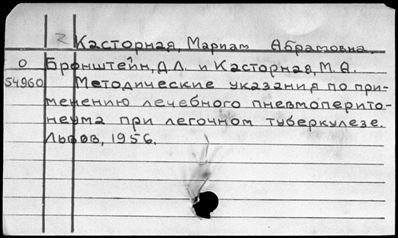 2 Касторная, Мариам Абрамовна.
О Бронштейн, Д.Л. и Касторная, М.А.
54960 Методические указания по при-
менению лечебного пневмоперито-
неума при легочном туберкулезе.
Львов, 1956.